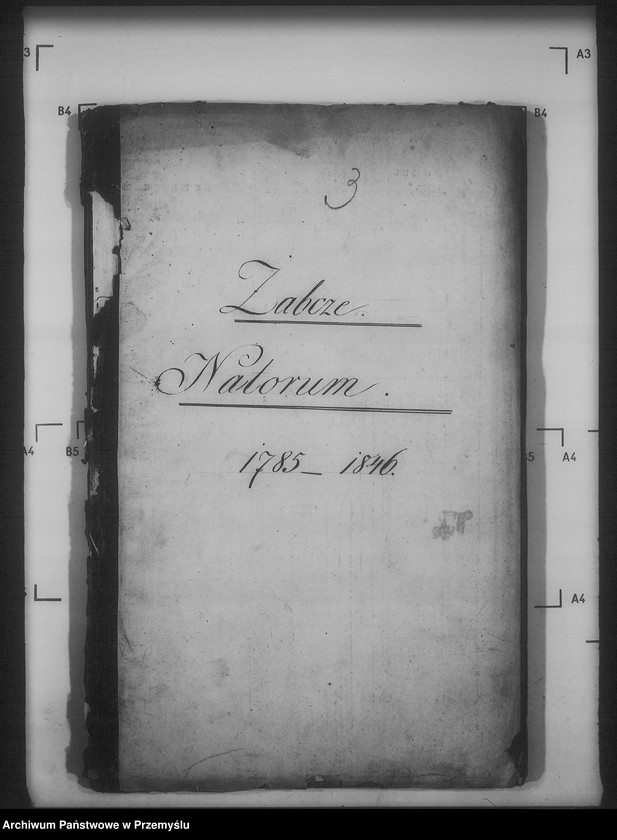 A3
A3
B4
B4
3
Zabcze.
Natorum.
1785 – 1846.
A4
B5
B5
A4
A4
Archiwum Państwowe w Przemyślu